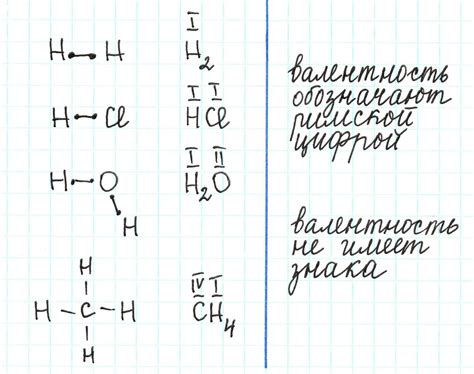 I
H—H H₂
I I
H—Cl HCl
I II
H—O H₂O
H
H
IV I
H—C—H CH₄
H
валентность
обозначают
римской
цифрой
валентность
не имеет
знака